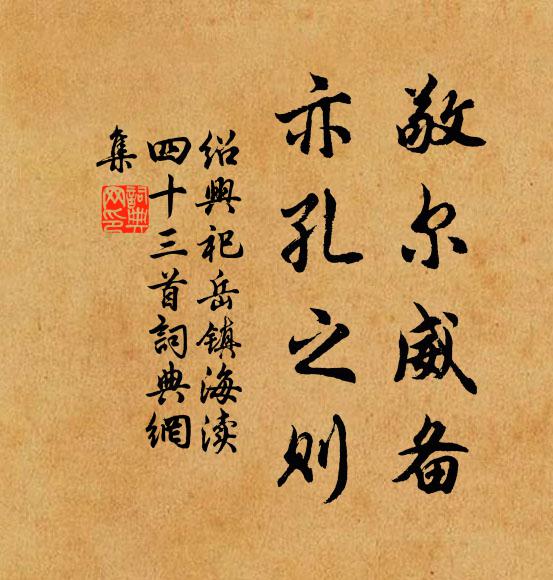 敬尔威备
亦孔之则
绍興祀岳镇海渎
四十三首詞典網
集
詞典
网印